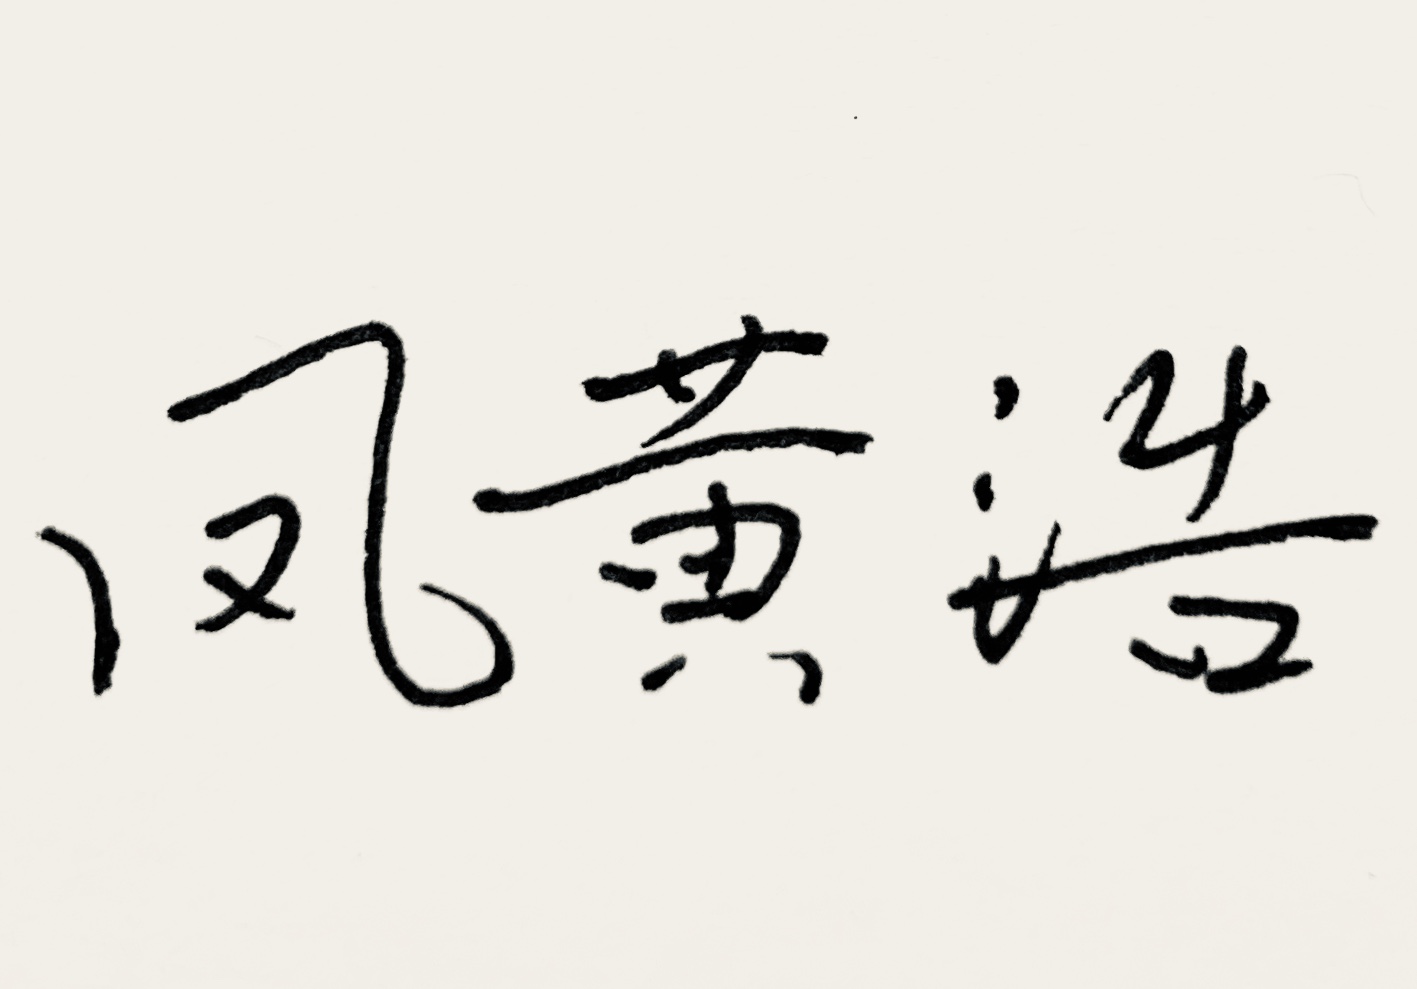 凤黄浩